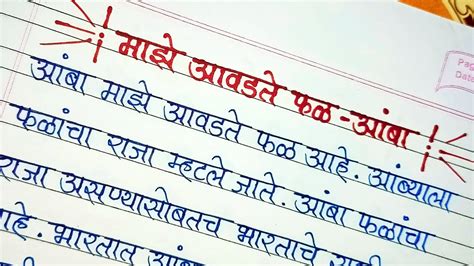 माझे आवडते फळ - आंबा
Pag
Date
आंबा माझे आवडते फळ आहे. आंब्याला
फळांचा राजा म्हटले जाते. आंबा फळांचा
राजा असण्यासोबतच भारताचे
आहे. भारतात